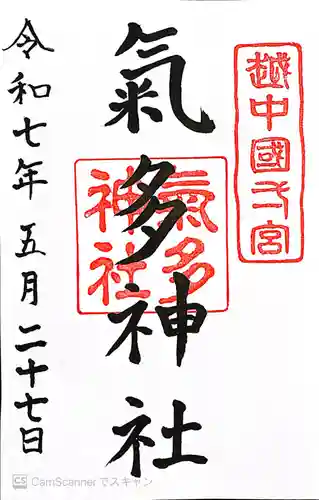 越中國一宮
氣多神社
氣多
神社
令和七年五月二十七日
CS CamScanner でスキャン